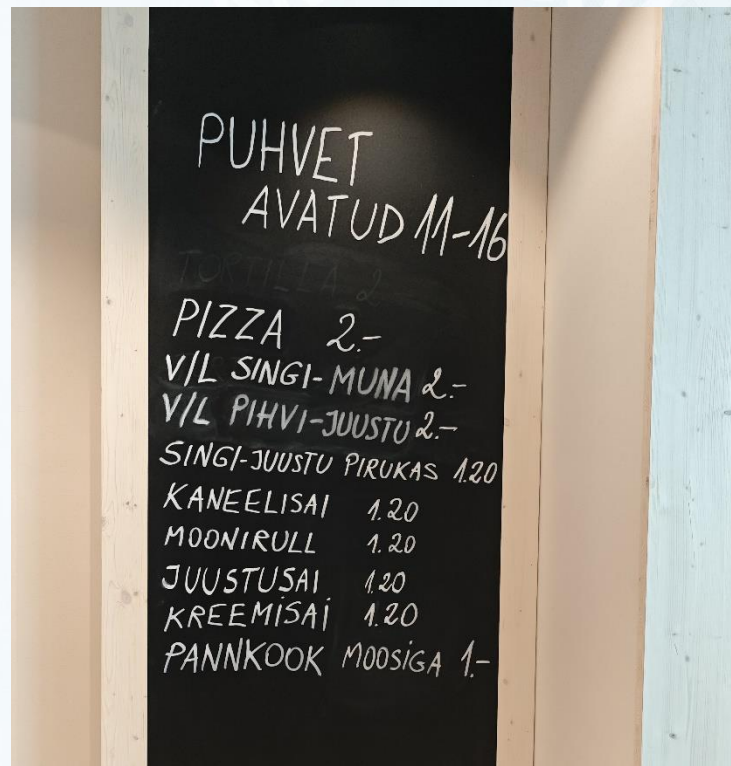 PUHVET
AVATUD 11-16
TORTILLA 2
PIZZA 2.-
V/L SINGI-MUNA 2.-
V/L PIHVI-JUUSTU 2.-
SINGI-JUUSTU PIRUKAS 1.20
KANEELISAI 1.20
MOONIRULL 1.20
JUUSTUSAI 1.20
KREEMISAI 1.20
PANNKOOK MOOSIGA 1.-